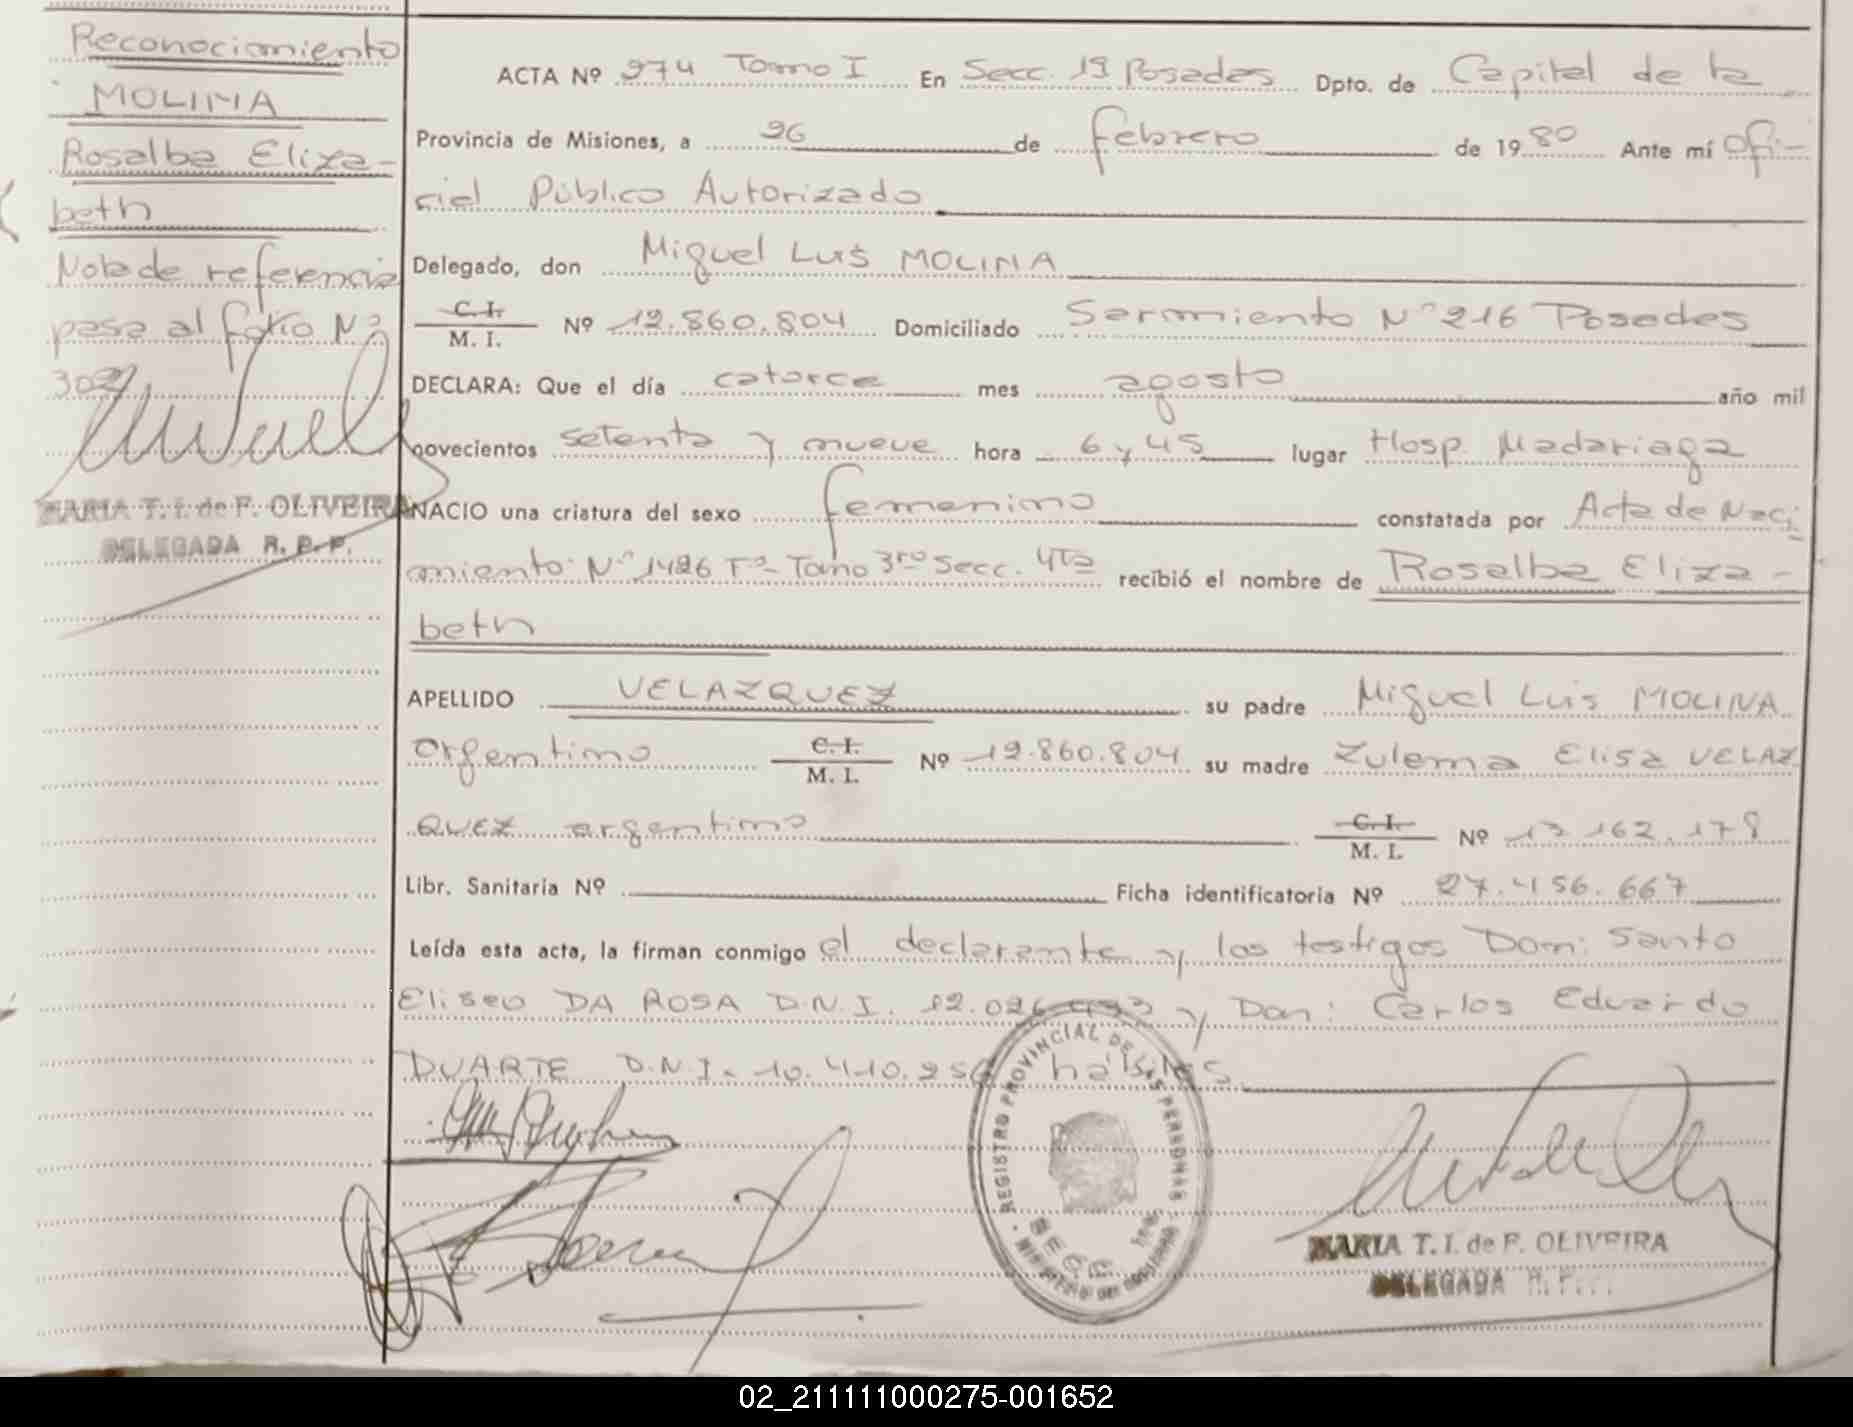 Reconocimiento
MOLINA
Rosalba Eliza-
beth
Nota de referencia
pasa al folio Nº
302
MARIA T. I. de F. OLIVEIRA
DELEGADA R. P. P.
ACTA Nº 974 Tomo I En Secc. 1ª Posadas Dpto. de Capital de la
Provincia de Misiones, a 26 de febrero de 1980 Ante mí Ofi-
cial Público Autorizado
Delegado, don Miguel Luis MOLINA
C. I.
M. I. Nº 12.860.804 Domiciliado Sarmiento Nº 216 Posadas
DECLARA: Que el día catorce mes agosto año mil
novecientos setenta y nueve hora 6 y 45 lugar Hosp. Madariaga
NACIO una criatura del sexo femenino constatada por Acta de Naci
miento: Nº 1426 Tº- Tomo 3ro Secc. 4ta recibió el nombre de Rosalba Eliza-
beth
APELLIDO VELAZQUEZ su padre Miguel Luis MOLINA
argentino C. I. M. I. Nº 12.860.804 su madre Zulema Elisa VELAZ
QUEZ argentina C. I. M. I. Nº 13.162.178
Libr. Sanitaria Nº Ficha identificatoria Nº 27.456.667
Leída esta acta, la firman conmigo el declarante y los testigos Don: Santo
Eliseo DA ROSA D.N.I. 12.026.493 y Don: Carlos Eduardo
DUARTE D.N.I. 10.410.256 hábiles
REGISTRO PROVINCIAL DE LAS PERSONAS
SECC. 1ra
MARIA T. I. de F. OLIVEIRA
DELEGADA R. P. P.
02_211111000275-001652